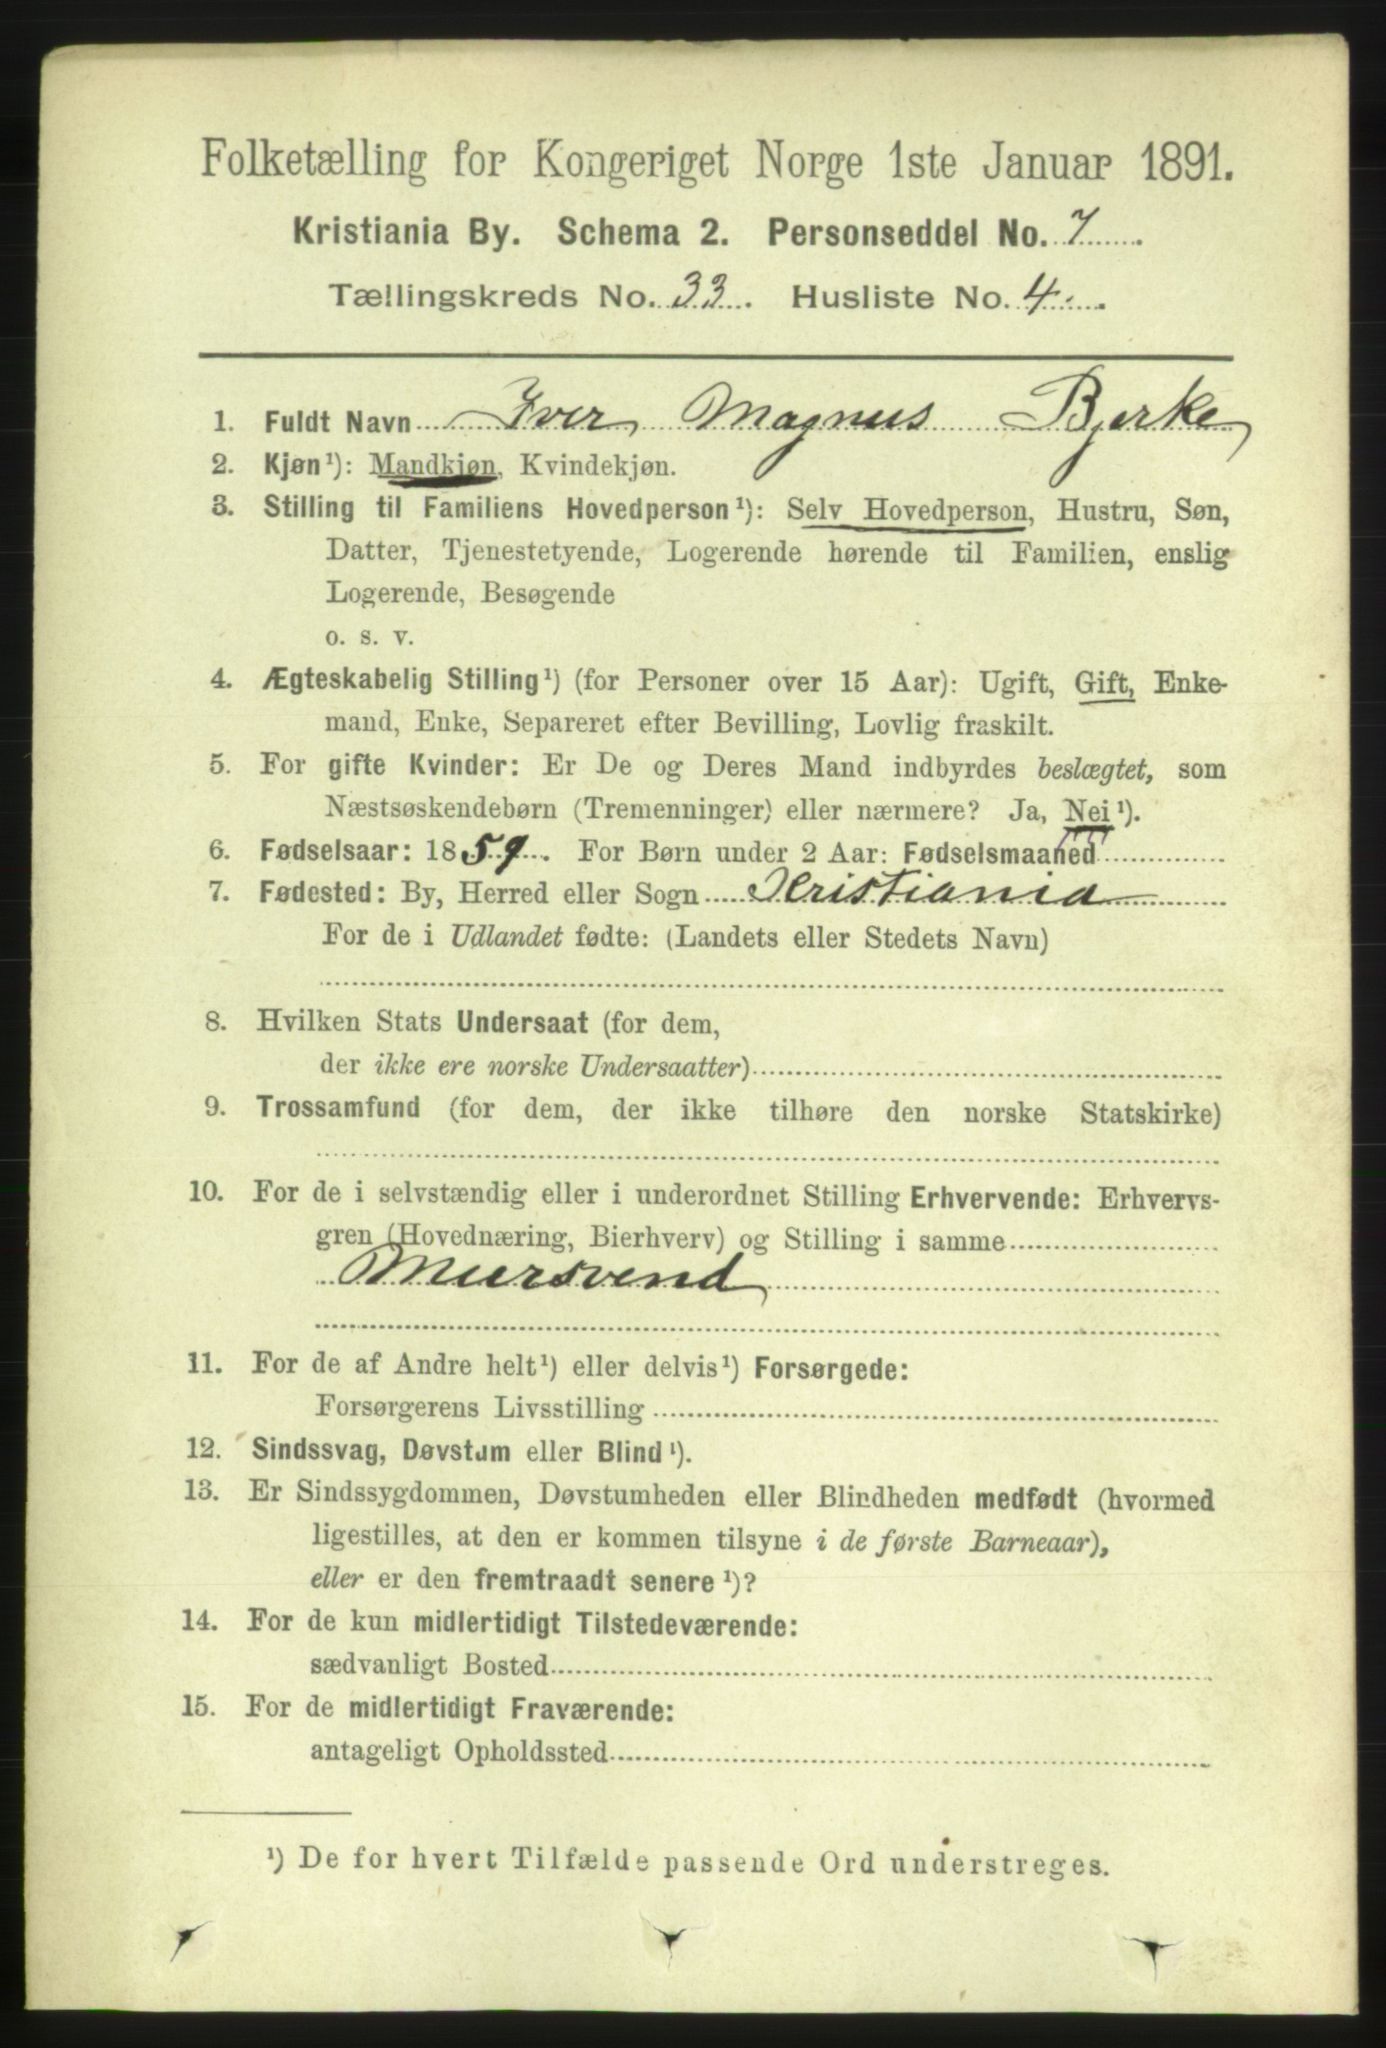 Folketælling for Kongeriget Norge 1ste Januar 1891.
Kristiania By. Schema 2. Personseddel No. 7
Tællingskreds No. 33. Husliste No. 4.
1. Fuldt Navn Iver Magnus Bjerke
2. Kjøn¹): Mandkjøn, Kvindekjøn.
3. Stilling til Familiens Hovedperson¹): Selv Hovedperson, Hustru, Søn,
Datter, Tjenestetyende, Logerende hørende til Familien, enslig
Logerende, Besøgende
o. s. v.
4. Ægteskabelig Stilling¹) (for Personer over 15 Aar): Ugift, Gift, Enke-
mand, Enke, Separeret efter Bevilling, Lovlig fraskilt.
5. For gifte Kvinder: Er De og Deres Mand indbyrdes beslægtet, som
Næstsøskendebørn (Tremenninger) eller nærmere? Ja, Nei¹).
6. Fødselsaar: 1859. For Børn under 2 Aar: Fødselsmaaned
7. Fødested: By, Herred eller Sogn Kristiania
For de i Udlandet fødte: (Landets eller Stedets Navn)
8. Hvilken Stats Undersaat (for dem,
der ikke ere norske Undersaatter)
9. Trossamfund (for dem, der ikke tilhøre den norske Statskirke)
10. For de i selvstændig eller i underordnet Stilling Erhvervende: Erhvervs-
gren (Hovednæring, Bierhverv) og Stilling i samme
Mursvend
11. For de af Andre helt¹) eller delvis¹) Forsørgede:
Forsørgerens Livsstilling
12. Sindssvag, Døvstum eller Blind¹).
13. Er Sindssygdommen, Døvstumheden eller Blindheden medfødt (hvormed
ligestilles, at den er kommen tilsyne i de første Barneaar),
eller er den fremtraadt senere¹)?
14. For de kun midlertidigt Tilstedeværende:
sædvanligt Bosted
15. For de midlertidigt Fraværende:
antageligt Opholdssted
¹) De for hvert Tilfælde passende Ord understreges.